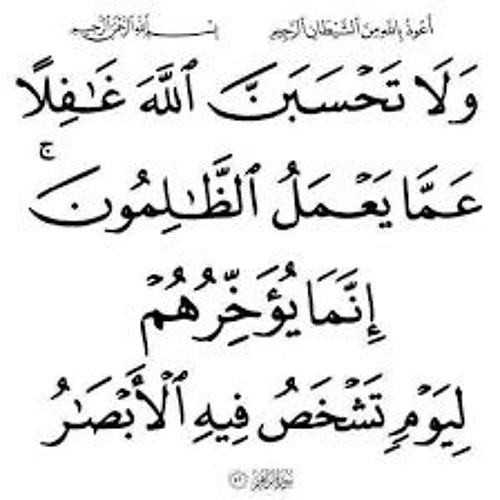 أعوذ بالله من الشيطان الرجيم بسم الله الرحمن الرحيم
وَلَا تَحْسَبَنَّ ٱللَّهَ غَـٰفِلًا
عَمَّا يَعْمَلُ ٱلظَّـٰلِمُونَ ۚ
إِنَّمَا يُؤَخِّرُهُمْ
لِيَوْمٍ تَشْخَصُ فِيهِ ٱلْأَبْصَـٰرُ